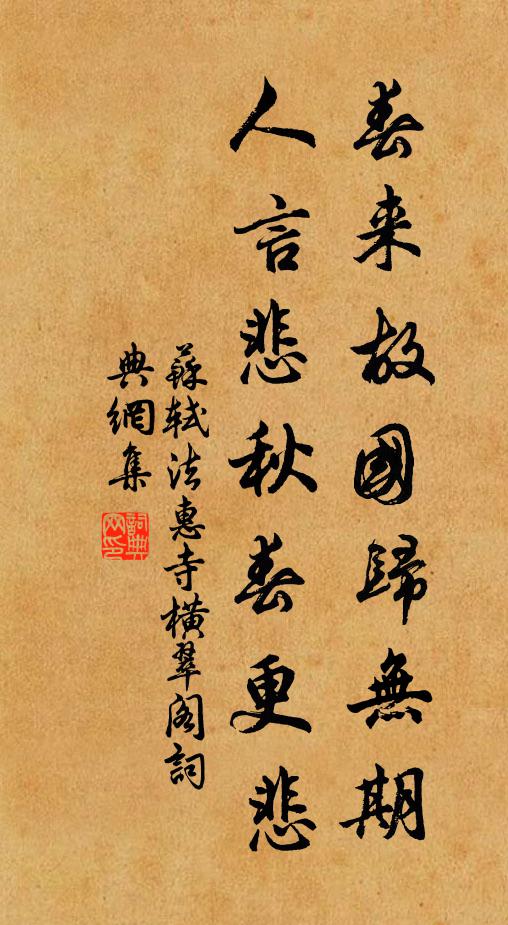 春来故國歸無期
人言悲秋春更悲
蘇軾法惠寺橫翠阁詞
典網集
詞典网印